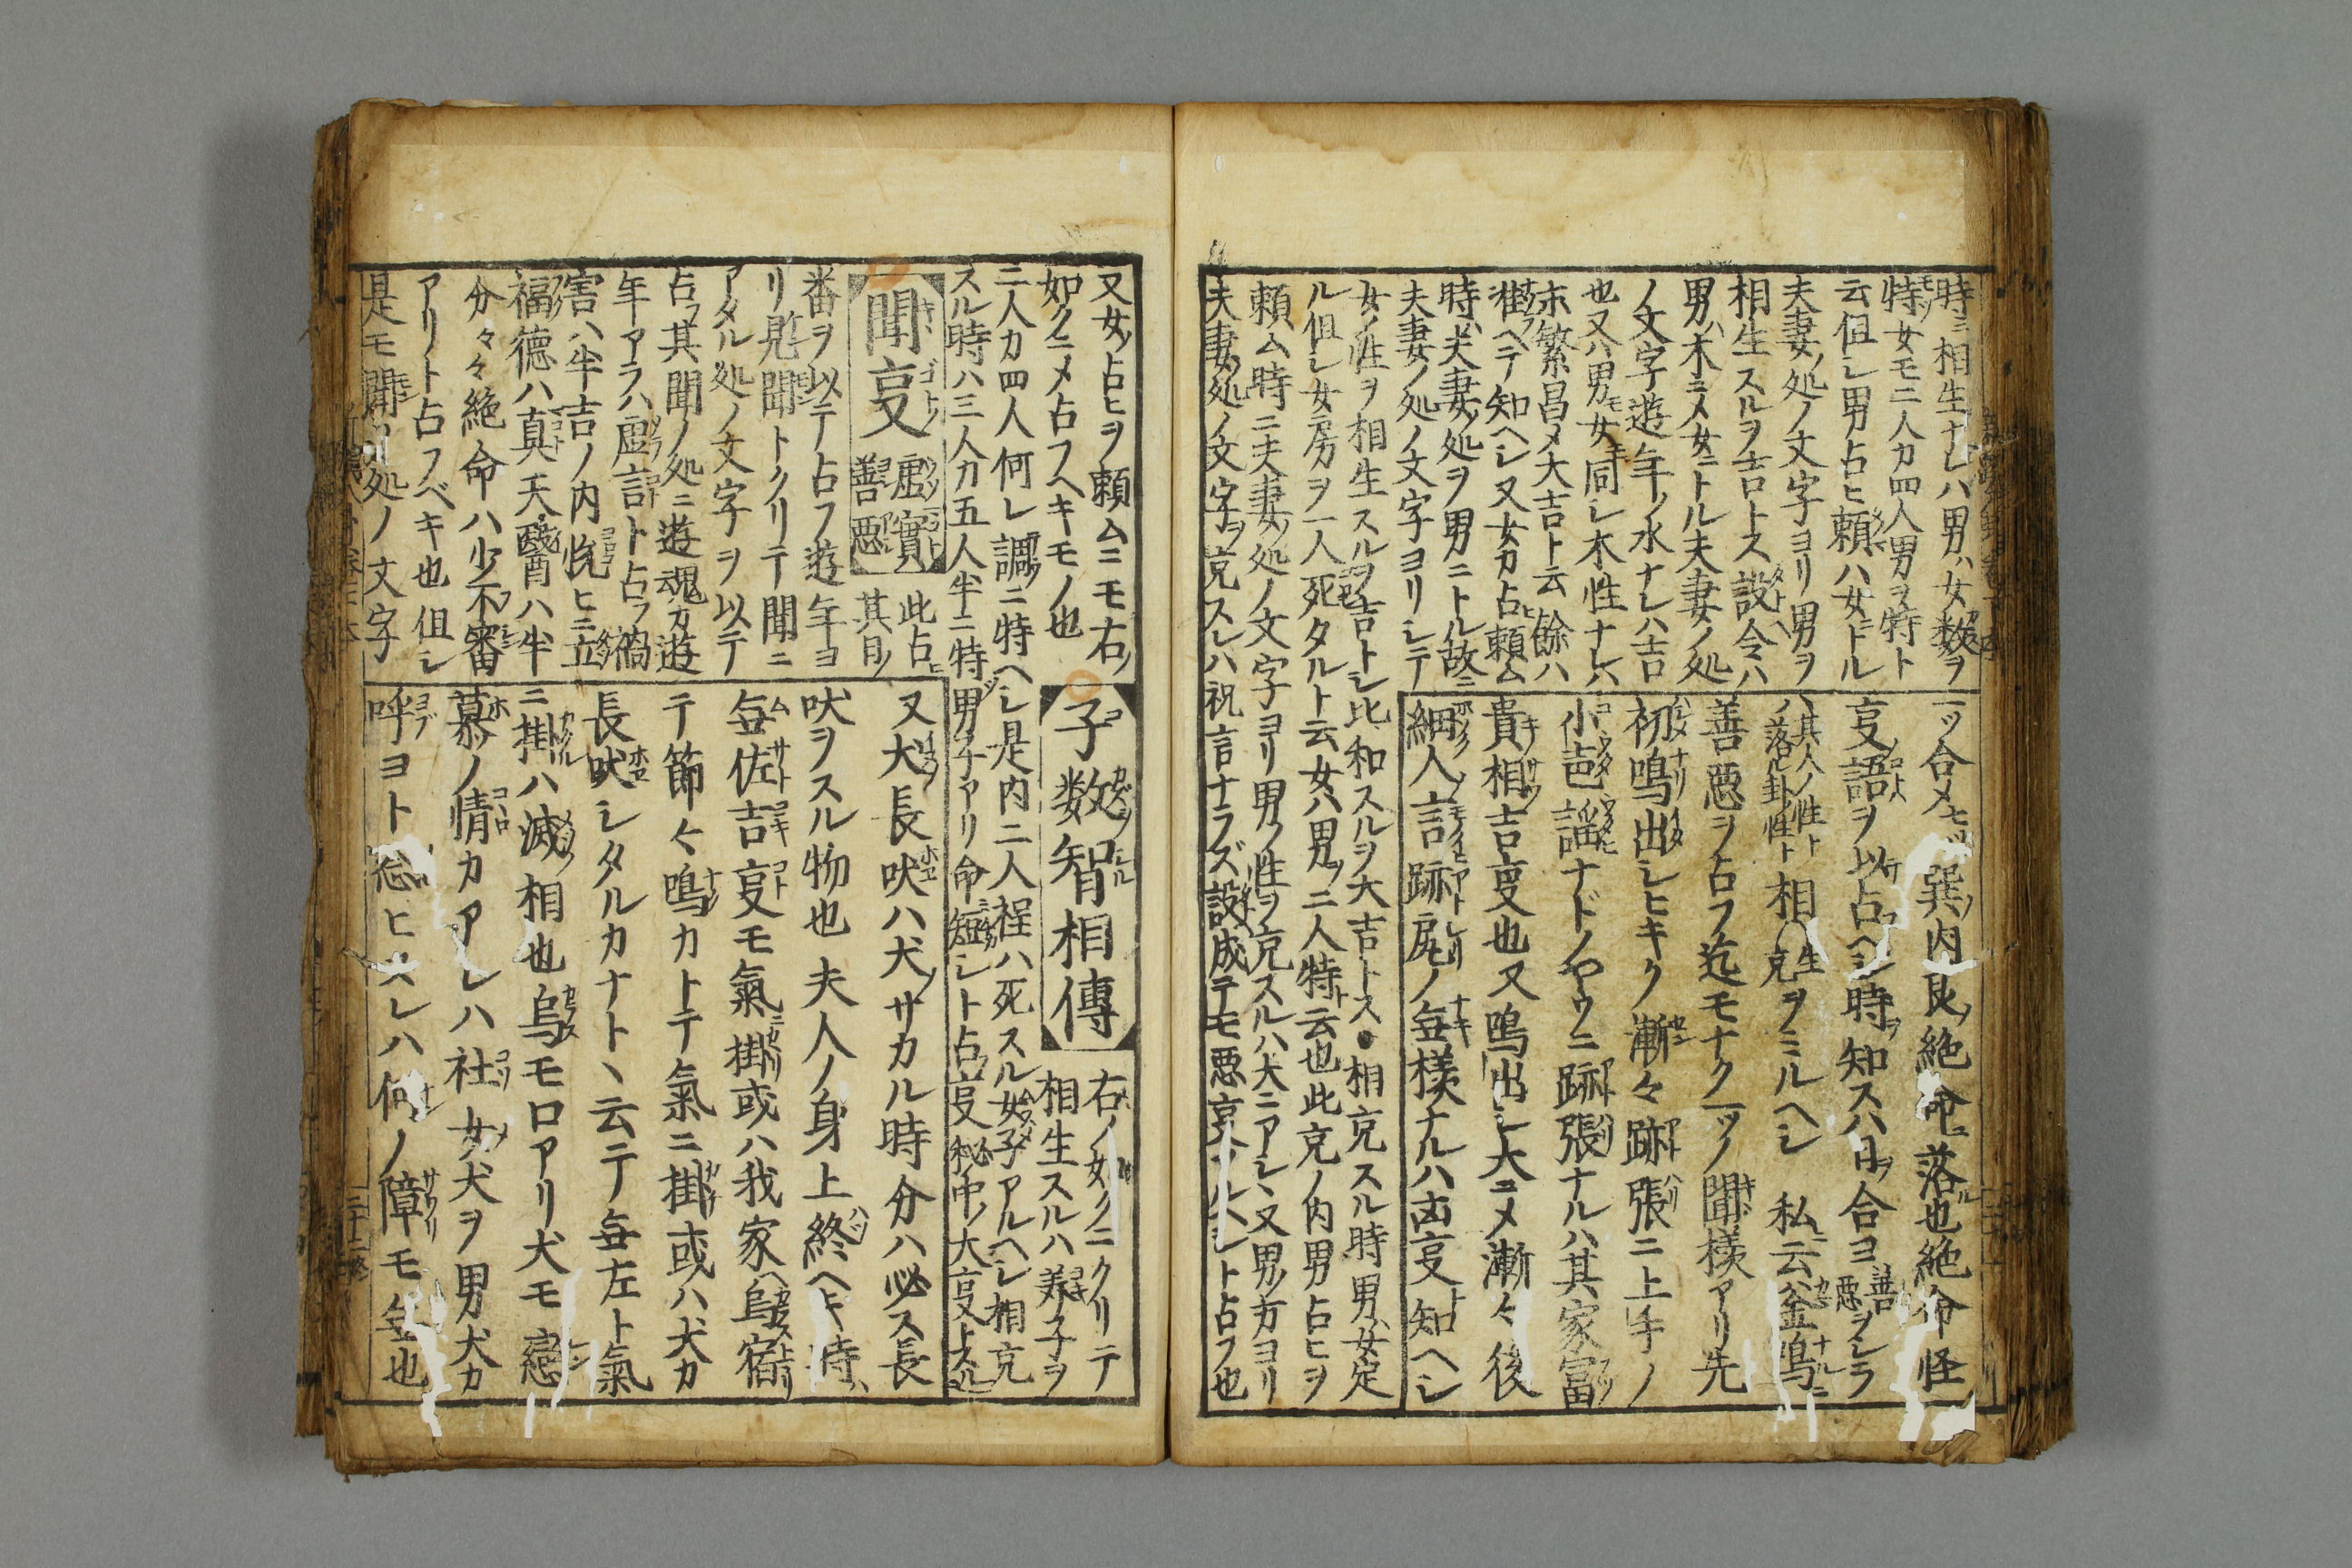 時ニ相生ナレハ男ハ女数ヲ
特女モ三人カ四人男ヲ特ト
云但シ男占ヒ頼ハ女ニトル
夫妻ノ処ノ文字ヨリ男ヲ
相生スルヲ吉トス設令ハ
男ハ木ニメ女ニトル夫妻ノ処
ノ文字遊年ノ水ナレハ吉
也又ハ男モ女モ同シ木性ナレハ
末繁昌メ大吉ト云餘ハ
准ヘテ知ヘシ又女カ占頼ム
時ハ夫妻ノ処ヲ男ニトル故ニ
夫妻ノ処ノ文字ヨリシテ
女ノ性ヲ相生スルヲ吉トシ比和スルヲ大吉トス●相克スル時男ハ女定
ル但シ女房ヲ一人死タルト云女ハ男ヲ二人特ト云也此克ノ内男占ヒヲ
頼ム時ニ夫妻ノ処ノ文字ヨリ男ノ性ヲ克スルハ大ニアシヽ又男ノ方ヨリ
夫妻ノ処ノ文字ヲ克スレハ祝言ナラズ設成テモ悪亊
ト占フ也
一ツ合メ
巽内艮ノ絶命ニ落ル也絶命怪
亊語ヲ以占ヘシ時ヲ知スハ日ヲ合ヨ善悪ヲシラ
ハ其人ノ性ト落ル卦性ト相生克ヲミルヘシ 私云釜鳴ニ
善悪ヲ占フ迄モナク一ツノ聞様アリ先
初鳴出シヒキク漸々跡張ニ上手ノ
小哥謡ナドノヤウニ跡張ナルハ其家冨
貴相吉亊也又鳴出シ大ニメ漸々後
細人言跡尻ノ無様ナルハ凶亊ト知ヘシ
又女ノ占ヒヲ頼ムニモ右ノ
如クニメ占フヘキモノ也
二人カ四人何レ調ニ特ヘシ是内二人程ハ死スル女子アルヘシ相克
スル時ハ三人カ五人半ニ特男子アリ命短シト占亊秘中ノ大亊トスル
子数智相傳
右ノ如クニクリテ
相生スルハ養子ヲ
聞亊 虚實善悪
此占ヒ
其日ノ
番ヲ以テ占フ遊年ヨ
リ見聞トクリテ聞ニ
アタル処ノ文字ヲ以テ
占フ其聞ノ処ニ遊魂カ遊
年アラハ虚言ト占フ禍
害ハ半吉ノ内悦ヒニ立
福徳ハ真天醫ハ半
分々々絶命ハ少不審
アリト占フベキ也但シ
是モ聞ノ処ノ文字
又犬長吠ハ犬ノサカル時分ハ必ス長
吠ヲスル物也夫人ノ身上終ヘキ時ハ
無佐吉亊モ氣掛或ハ我家ヘ烏宿リ
テ節々鳴カトテ氣ニ掛或ハ犬カ
長吠シタルカナトヽ云テ無左ト氣
ニ掛ハ滅相也烏モロアリ犬モ戀
慕ノ情カアレハ社女犬ヲ男犬カ
呼ヨト忍ヒスレハ何ノ障モ無也